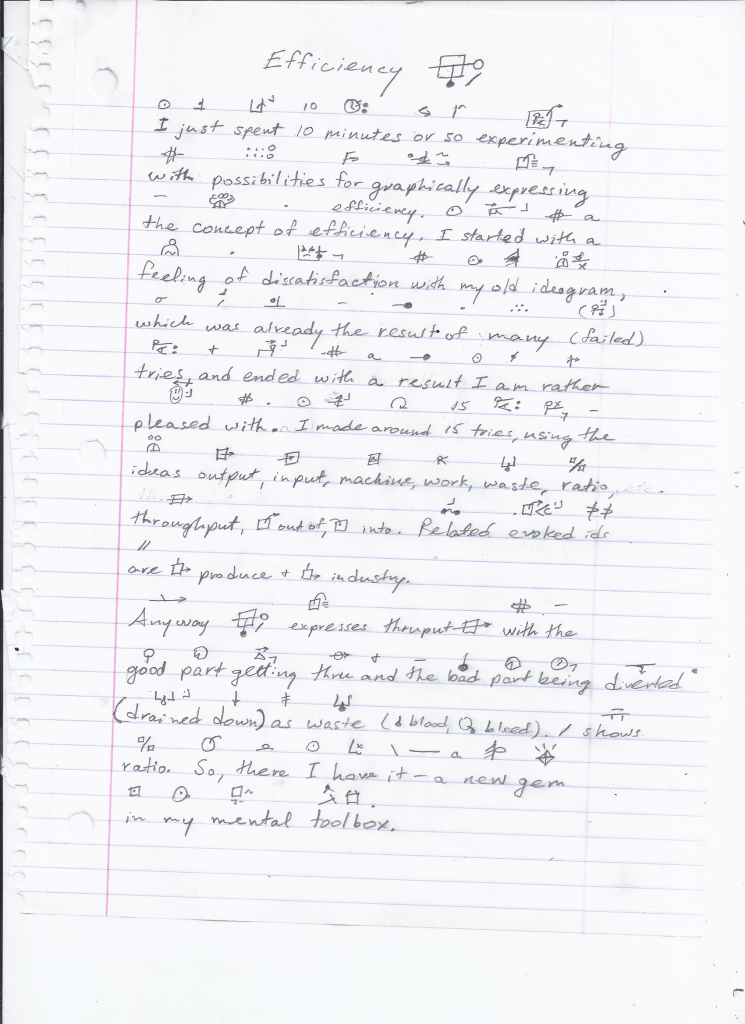 Efficiency
10
I just spent 10 minutes or so experimenting
with possibilities for graphically expressing
efficiency. a
the concept of efficiency. I started with a
feeling of dissatisfaction with my old ideogram,
which was already the result of many (failed)
a
tries, and ended with a result I am rather
15
pleased with. I made around 15 tries, using the
ideas output, input, machine, work, waste, ratio, etc.
throughput, out of, into. Related evoked ids
are produce + industry.
Anyway expresses thruput with the
good part getting thru and the bad part being diverted
(drained down) as waste (blood, bleed). / shows
a
ratio. So, there I have it – a new gem
in my mental toolbox.